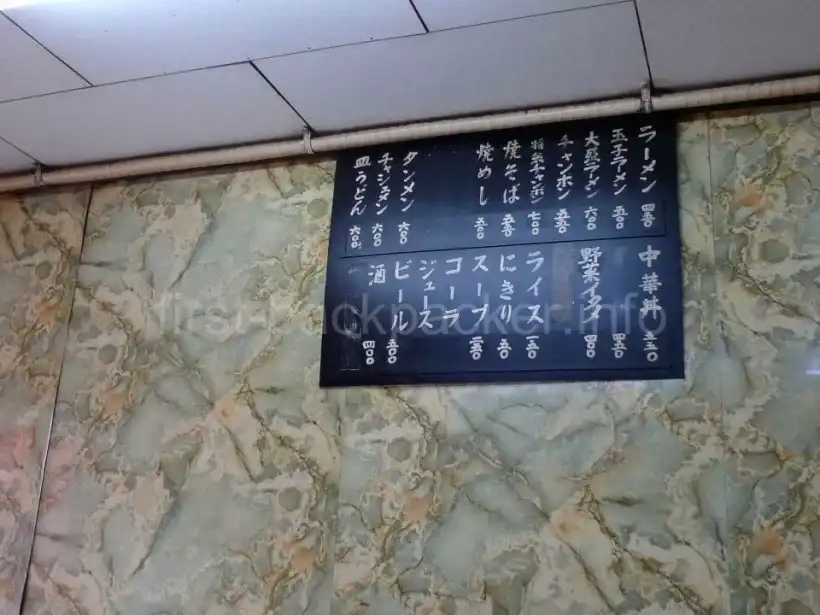 ラーメン 四五〇
玉子ラーメン 五〇〇
大盛ラーメン 六〇〇
チャンポン 五五〇
特製チャンポン 七〇〇
焼そば 五五〇
焼めし 五〇〇
タンメン 六〇〇
チャジャメン 六〇〇
皿うどん 六〇〇
中華丼 五五〇
四五〇
野菜イタメ 四〇〇
ライス 一五〇
にきり 五〇
スープ 一五〇
コーラ
ジュース
ビール 五〇〇
酒 四〇〇
first-backpacker.info